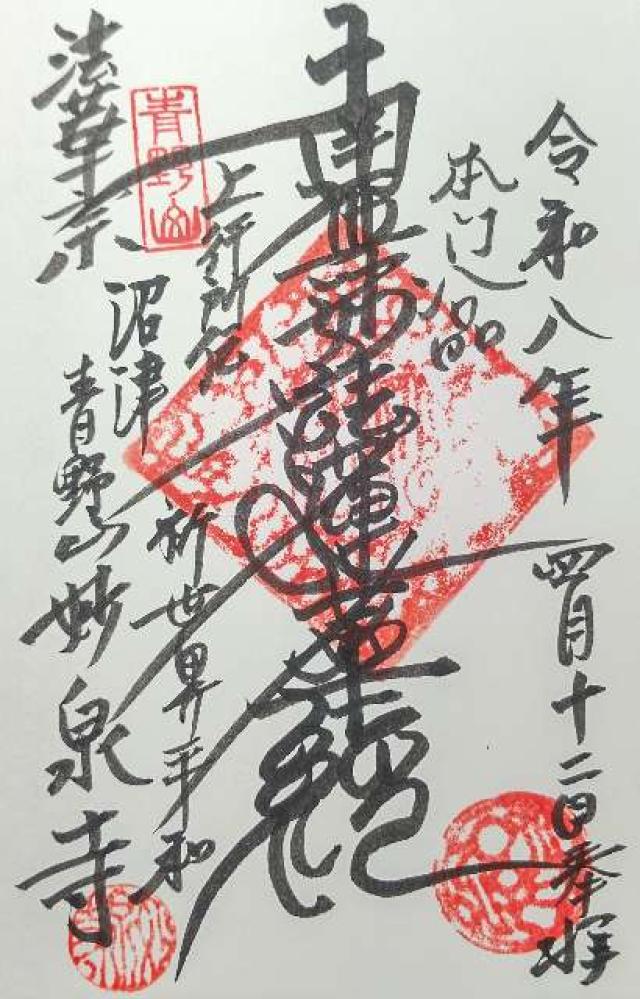 令和八年 四月十二日奉拝
本門八品
南無妙法蓮華経
上行所伝
祈世界平和
青野山
法華宗
沼津
青野山妙泉寺